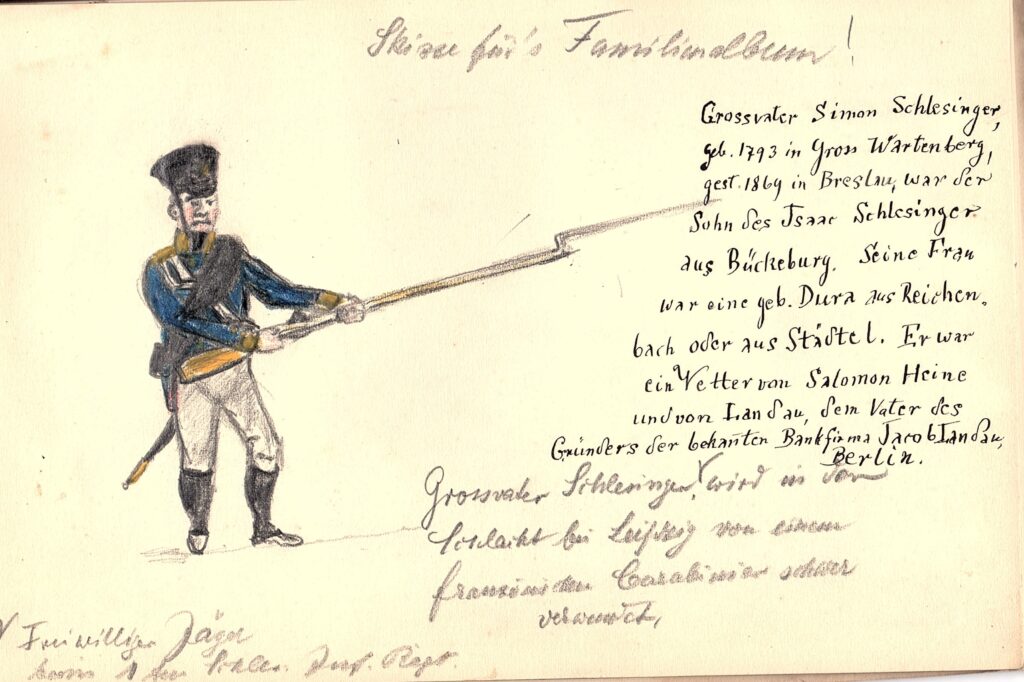 Skizze für's Familienalbum!
Grossvater Simon Schlesinger,
geb. 1793 in Gross Wartenberg,
gest. 1869 in Breslau, war der
Sohn des Isaac Schlesinger
aus Bückeburg. Seine Frau
war eine geb. Dura aus Reichen-
bach oder aus Städtel. Er war
ein Vetter von Salomon Heine
und von Landau, dem Vater des
Gründers der bekanten Bankfirma Jacob Landau,
Berlin.
Grossvater Schlesinger, wird in der
Schlacht bei Leipzig von einem
Carabinier schwer
verwundet,
Freiwilliger Jäger
beim 1 ten Schles. Inf. Regt.